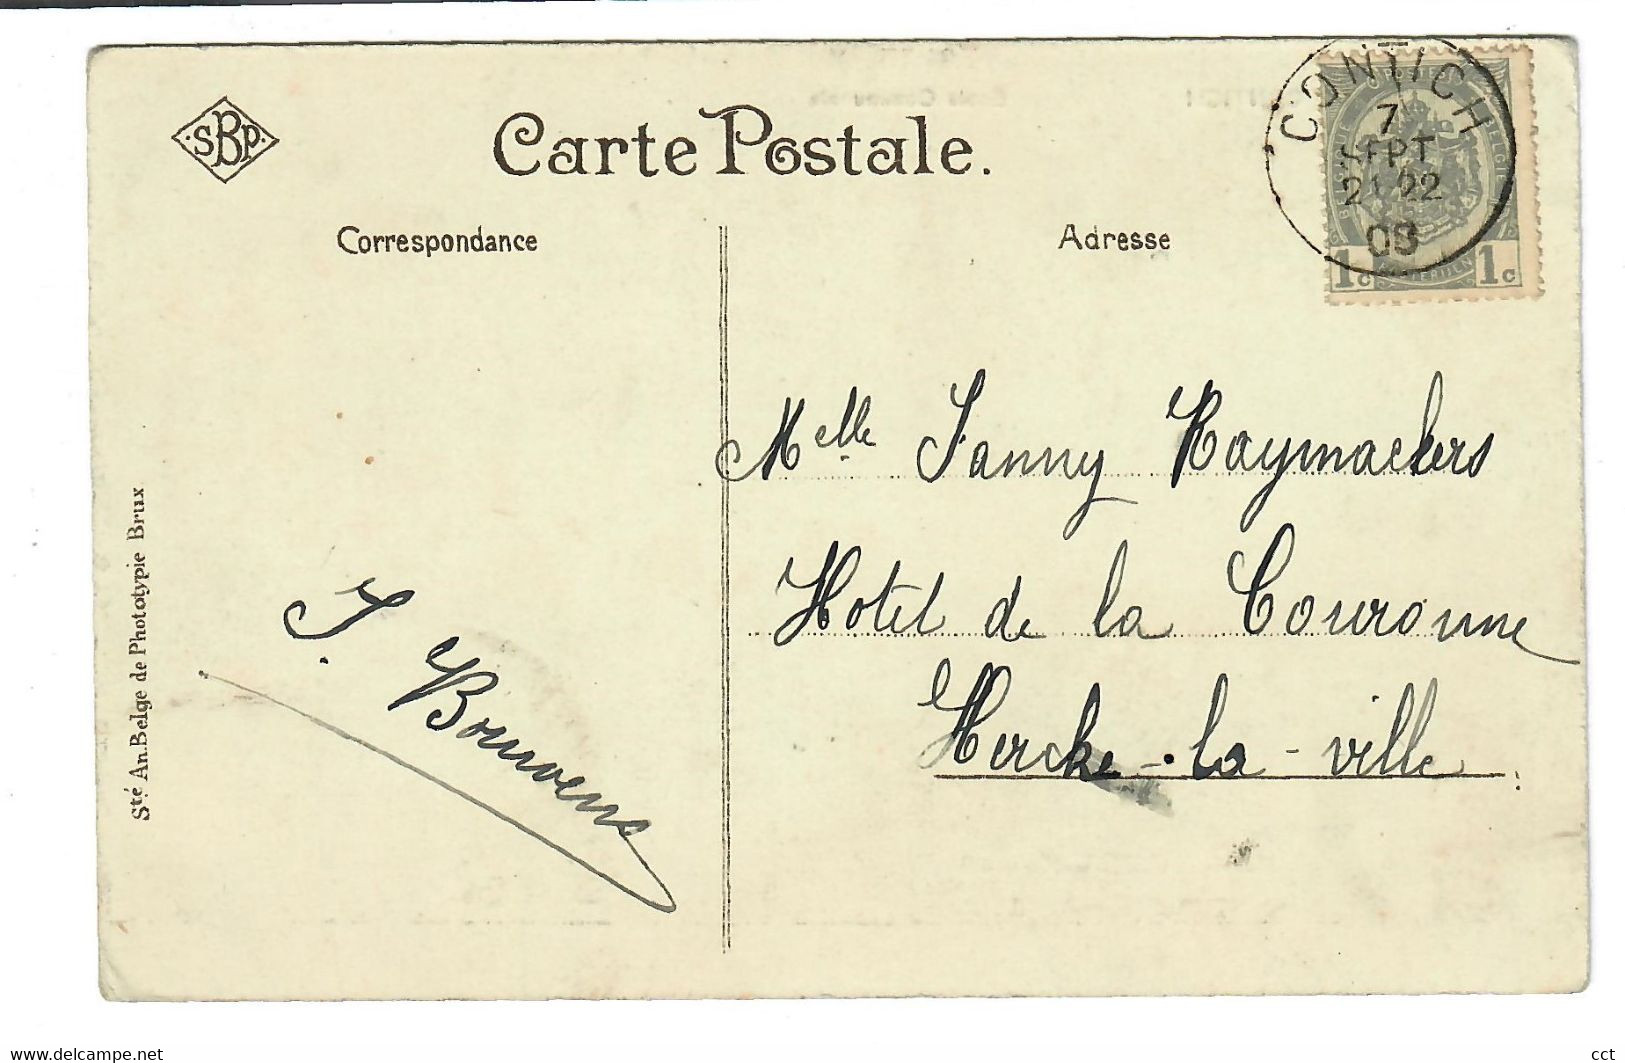 SBP
Carte Postale.
Correspondance
Adresse
CONTICH
7
SEPT
21-22
1c 1c
Melle Fanny Raymackers
Hotel de la Couronne
Hercke-la-ville
J. Bouwens
Sté An. Belge de Phototypie Brux
www.delcampe.net
cct